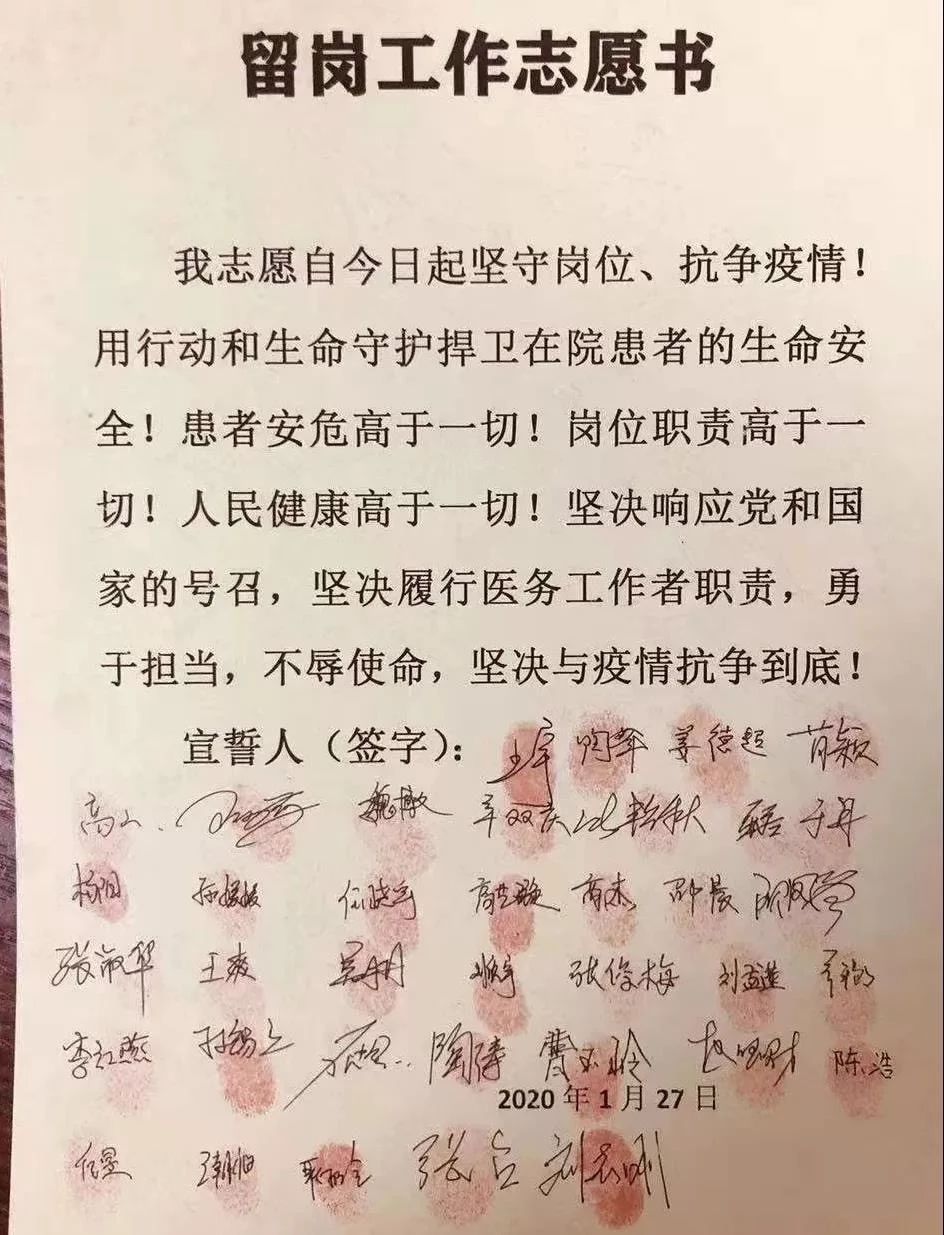 留岗工作志愿书
我志愿自今日起坚守岗位、抗争疫情！
用行动和生命守护捍卫在院患者的生命安
全！患者安危高于一切！岗位职责高于一
切！人民健康高于一切！坚决响应党和国
家的号召，坚决履行医务工作者职责，勇
于担当，不辱使命，坚决与疫情抗争到底！
宣誓人（签字）： 姜德超 肖颖
魏敏 于丹
杨阳 孙媛媛 任晓宇 肖杰 邵晨
张淑华 王爽 张俊梅 刘孟莲
李红燕 陶涛 陈浩
2020 年 1 月 27 日
任昱